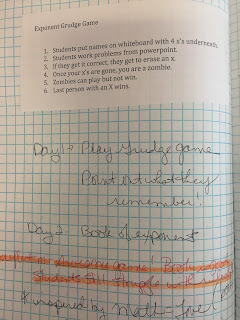 Exponent Grudge Game
1. Students put names on whiteboard with 4 x's underneath.
2. Students work problems from powerpoint.
3. If they get it correct, they get to erase an x.
4. Once your x's are gone, you are a zombie.
5. Zombies can play but not win.
6. Last person with an X wins.
Day 1 → Play Grudge game
Point out what they
remember!
Day 2 - Book of exponents
awesome game!
Students still struggle with
* inspired by math-